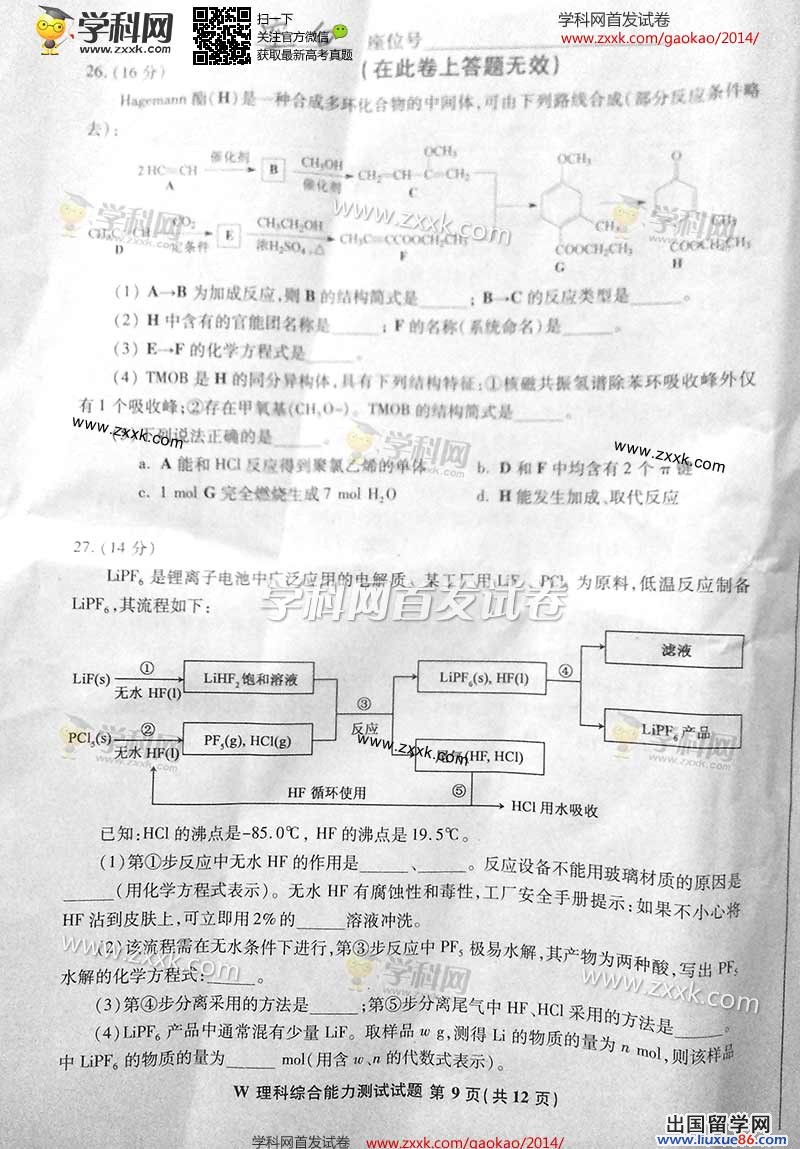 学科网
www.zxxk.com
扫一下
关注官方微信
获取最新高考真题
座位号
学科网首发试卷
www.zxxk.com/gaokao/2014/
26.(16分)
(在此卷上答题无效)
Hagemann酯(H)是一种合成多环化合物的中间体,可由下列路线合成(部分反应条件略
去):
2HC≡CH 催化剂 B CH₃OH 催化剂 CH₂=CH-C=CH₂ OCH₃
A C
OCH₃ O
CO₂ 定条件 E CH₃CH₂OH 浓H₂SO₄,△ CH₃C≡CCOOCH₂CH₃
D F
COOCH₂CH₃ G H
(1) A→B为加成反应,则B的结构简式是______;B→C的反应类型是______。
(2) H中含有的官能团名称是______;F的名称(系统命名)是______。
(3) E→F的化学方程式是______。
(4) TMOB是H的同分异构体,具有下列结构特征:①核磁共振氢谱除苯环吸收峰外仅
有1个吸收峰;②存在甲氧基(CH₃O-)。TMOB的结构简式是______。
下列说法正确的是______。
a. A能和HCl反应得到聚氯乙烯的单体 b. D和F中均含有2个π键
c. 1 mol G完全燃烧生成7 mol H₂O d. H能发生加成、取代反应
27.(14分)
LiPF₆是锂离子电池中广泛应用的电解质。某工厂用LiF、PCl₅为原料,低温反应制备
LiPF₆,其流程如下:
学科网首发试卷
滤液
LiF(s) ① 无水HF(l) LiHF₂饱和溶液 LiPF₆(s), HF(l) ④
③ 反应
PCl₅(s) ② 无水HF(l) PF₅(g), HCl(g) 尾气(HF, HCl) LiPF₆产品
HF循环使用 ⑤ HCl用水吸收
已知:HCl的沸点是-85.0℃,HF的沸点是19.5℃。
(1)第①步反应中无水HF的作用是______、______。反应设备不能用玻璃材质的原因是
______(用化学方程式表示)。无水HF有腐蚀性和毒性,工厂安全手册提示:如果不小心将
HF沾到皮肤上,可立即用2%的______溶液冲洗。
(2)该流程需在无水条件下进行,第③步反应中PF₅极易水解,其产物为两种酸,写出PF₅
水解的化学方程式:______。
(3)第④步分离采用的方法是______;第⑤步分离尾气中HF、HCl采用的方法是______。
(4)LiPF₆产品中通常混有少量LiF。取样品w g,测得Li的物质的量为n mol,则该样品
中LiPF₆的物质的量为______mol(用含w、n的代数式表示)。
W 理科综合能力测试试题 第9页(共12页)
出国留学网
www.liuxue86.com
学科网首发试卷 www.zxxk.com/gaokao/2014/